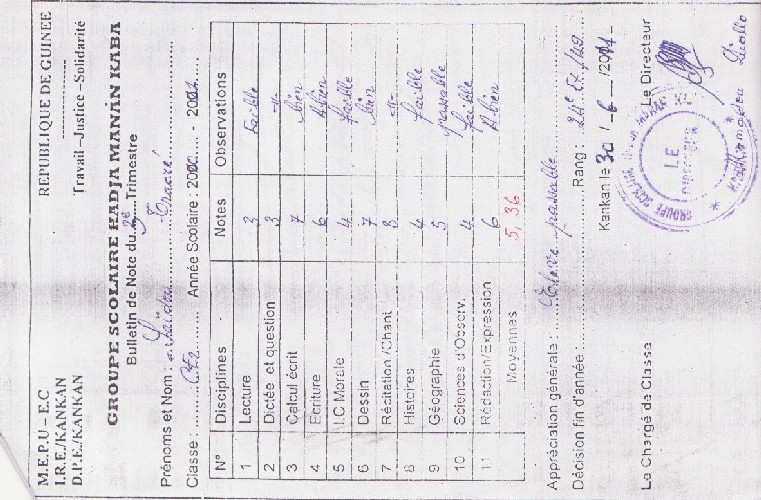 M.E.P.U – E.C REPUBLIQUE DE GUINEE
I.R.E./KANKAN ------------
D.P.E./KANKAN Travail –Justice –Solidarité
GROUPE SCOLAIRE HADJA MANAN KABA
Bulletin de Note du 3e Trimestre
Prénoms et Nom : Saïdou Traoré
Classe : CE2 Année Scolaire : 2010 - 2011
N° Disciplines Notes Observations
1 Lecture 3 Faible
2 Dictée et question 3 -"-
3 Calcul écrit 7 bien
4 Ecriture 6 A.bien
5 I.C Morale 4 faible
6 Dessin 7 bien
7 Récitation /Chant 8 -"-
8 Histoires 4 faible
9 Géographie 5 passable
10 Sciences d'Observ. 4 faible
11 Rédaction/Expression 6 A.bien
Moyennes 5,36
Appréciation générale : Elève passable
Décision fin d'année : Rang : 24e Ex/49
Kankan le 30 / 6 /2011
Le Chargé de Classe Le Directeur
LE
DIRECTEUR